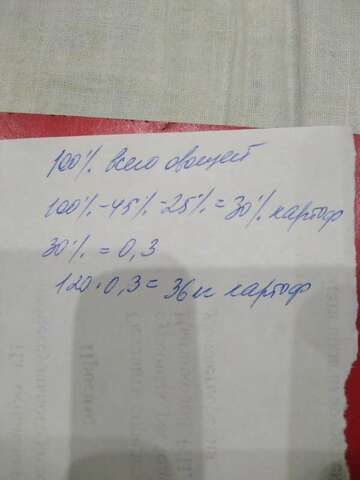 100% всего овощей
100% - 45% - 25% = 30% картоф
30% = 0,3
120 · 0,3 = 36 кг картоф